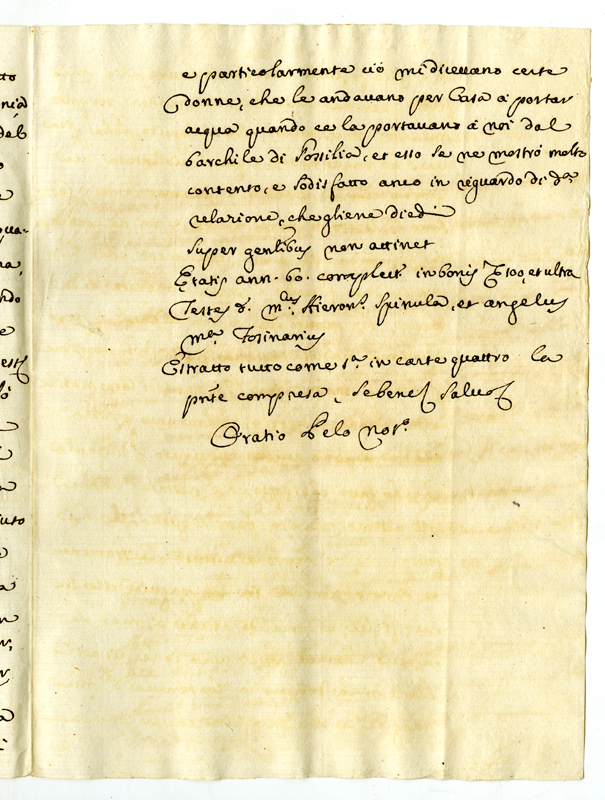 e particolarmente ciò mi dicevano certe
donne, che le andavano per Casa à portar
acqua quando ce la portavano à noi dal
barchile di Possilia, et esso se ne mostrò molto
contento, e sodisfatto anco in riguardo di d.ª
relazione, che gliene diedi
super gen.libus non attinet
Etatis ann. 60. complect in bonis 100, et ultra
Testes d. m.cus Hieron.s Spinula, et angelus
m.a Tosinarius
Estratto tutto come s.ª in carte quattro la
pnte compresa, sebene salvo
Oratio Belo not.º